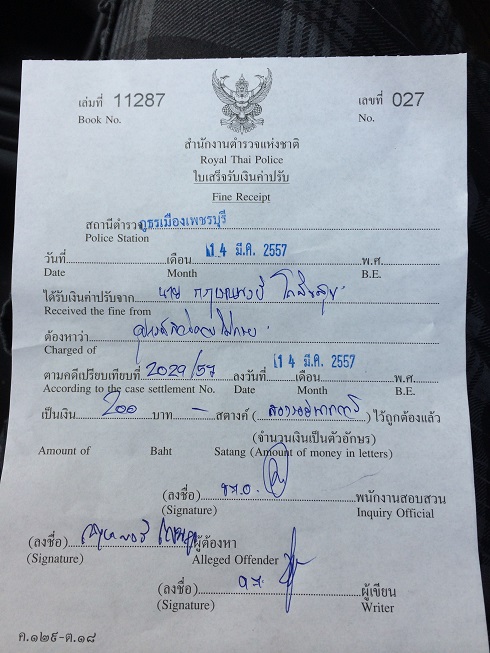 เล่มที่ 11287 เลขที่ 027
Book No. No.
สำนักงานตำรวจแห่งชาติ
Royal Thai Police
ใบเสร็จรับเงินค่าปรับ
Fine Receipt
สถานีตำรวจ ภูธรเมืองเพชรบุรี
Police Station
วันที่ เดือน 14 มี.ค. 2557 พ.ศ.
Date Month B.E.
ได้รับเงินค่าปรับจาก นาย
Received the fine from
ต้องหาว่า
Charged of
ตามคดีเปรียบเทียบที่ 2029/57 ลงวันที่ 14 มี.ค. 2557 เดือน พ.ศ.
According to the case settlement No. Date Month B.E.
เป็นเงิน 200 บาท - สตางค์ (สองร้อยบาท) ไว้ถูกต้องแล้ว
(จำนวนเงินเป็นตัวอักษร)
Amount of Baht Satang (Amount of money in letters)
(ลงชื่อ) พนักงานสอบสวน
(Signature) Inquiry Official
(ลงชื่อ) ผู้ต้องหา
(Signature) Alleged Offender
(ลงชื่อ) ผู้เขียน
(Signature) Writer
ค.๑๒๙-ต.๑๘